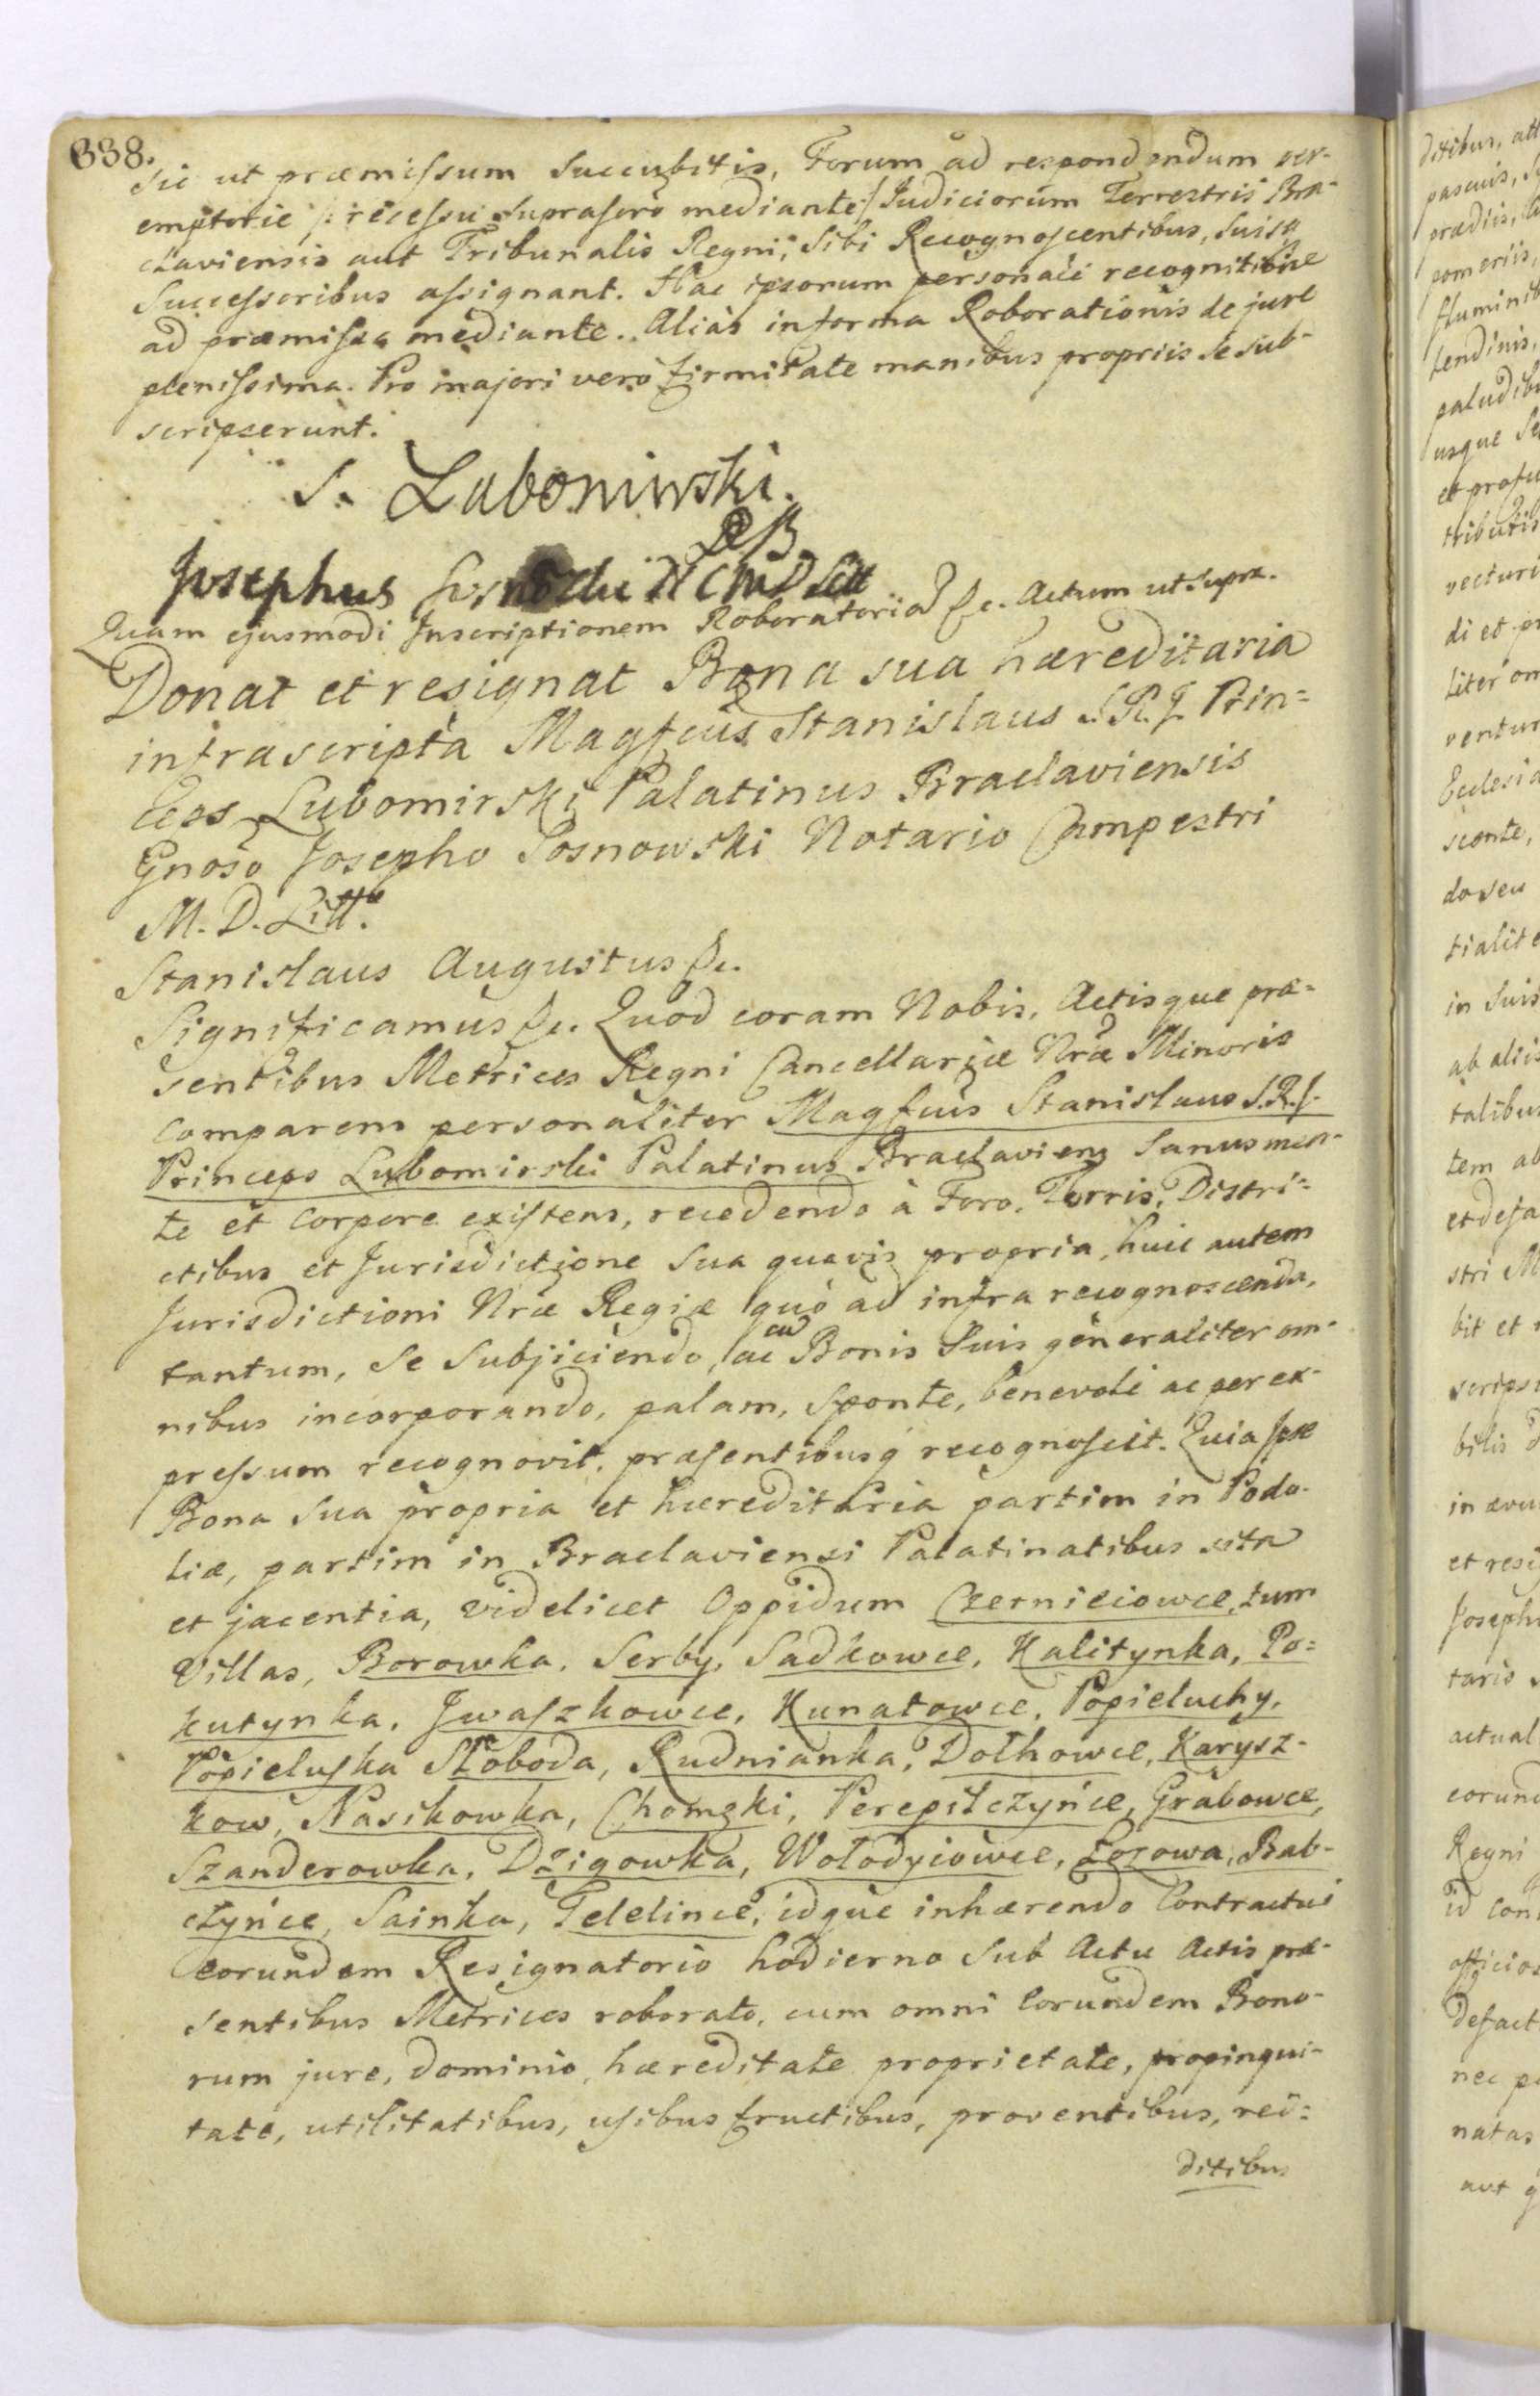 338.
sic ut præmissum succubitis, Forum ad respondendum per-
emptorie /: recessu suprafero mediante :/ Judiciorum Terrestris Bra-
claviensis aut Tribunalis Regni, sibi Recognoscentibus, Suisq
Successoribus assignant. Hac ipsorum personali recognitione
ad præmissa mediante. Aliàs in forma Roborationis de jure
plenissima. Pro majori verò firmitate manibus propriis se sub-
scripserunt.
S. Lubomirski.
Josephus
Quam ejusmodi Inscriptionem Roboratoria &c. Actum ut Supra.
Donat et resignat Bona sua hæreditaria
infrascripta Magfcus Stanislaus S. R. J. Prin=
ceps Lubomirski Palatinus Braclaviensis
Gnoso Josepho Sosnowski Notario Campestri
M. D. Litt.
Stanislaus Augustus &c.
Significamus &c. Quod coram Nobis, Actisque præ=
sentibus Metrices Regni Cancellariæ Nræ Minoris
comparens personaliter Magfcus Stanislaus S. R. J.
Princeps Lubomirski Palatinus Braclaviens Sanus men-
te et corpore existens, recedendo à Foro, Terris, Distri=
ctibus et Jurisdictione Sua quavis propria, huic autem
Jurisdictioni Nræ Regiæ quò ad infra recognoscenda,
tantum, se subjiciendo, ac cu Bonis Suis generaliter om-
nibus incorporando, palam, sponte, benevolè ac per ex-
pressum recognovit, præsentibusq recognoscit. Quia Ipse
Bona sua propria et hæreditaria partim in Podo-
liæ, partim in Braclaviensi Palatinatibus sita
et jacentia, videlicet Oppidum Czerniciowce, tum
Villas, Borowka, Serby, Sadkowce, Halitynka, Po=
kutynka, Jwaszkowce, Kunatowce, Popieluchy,
Popieluska Słoboda, Rudnianka, Dołhowce, Karysz-
kow, Nasikowka, Chomzki, Perepilczyńce, Grabowce,
Szanderowka, Dzigowka, Wołodyiowce, Łozowa, Bab-
czyńce, Sainka, Telelince, idque inhærendo Contractui
eorundem Resignatorio hodierno sub Actu Actis præ-
sentibus Metrices roborato, cum omni Eorundem Bono-
rum jure, dominio, hæreditate proprietate, propinqui-
tate, utilitatibus, usibus fructibus, proventibus, red=
ditibus
ditibus, att
pascuis,
prædiis,
pomeriis,
fluminib
tendinis,
paludibu
usque
et profu
tributis
vecturi
di et
liter om
ventur
Ecclesia
sponte,
do seu
tialite
in suis
ab aliis
talibus
tem ab
et defa
stri M
bit et
scripsi
bilis
in ævu
et resi
Josepho
tario
actual
eorund
Regni
id con
officios
defact
nec
natas
aut q